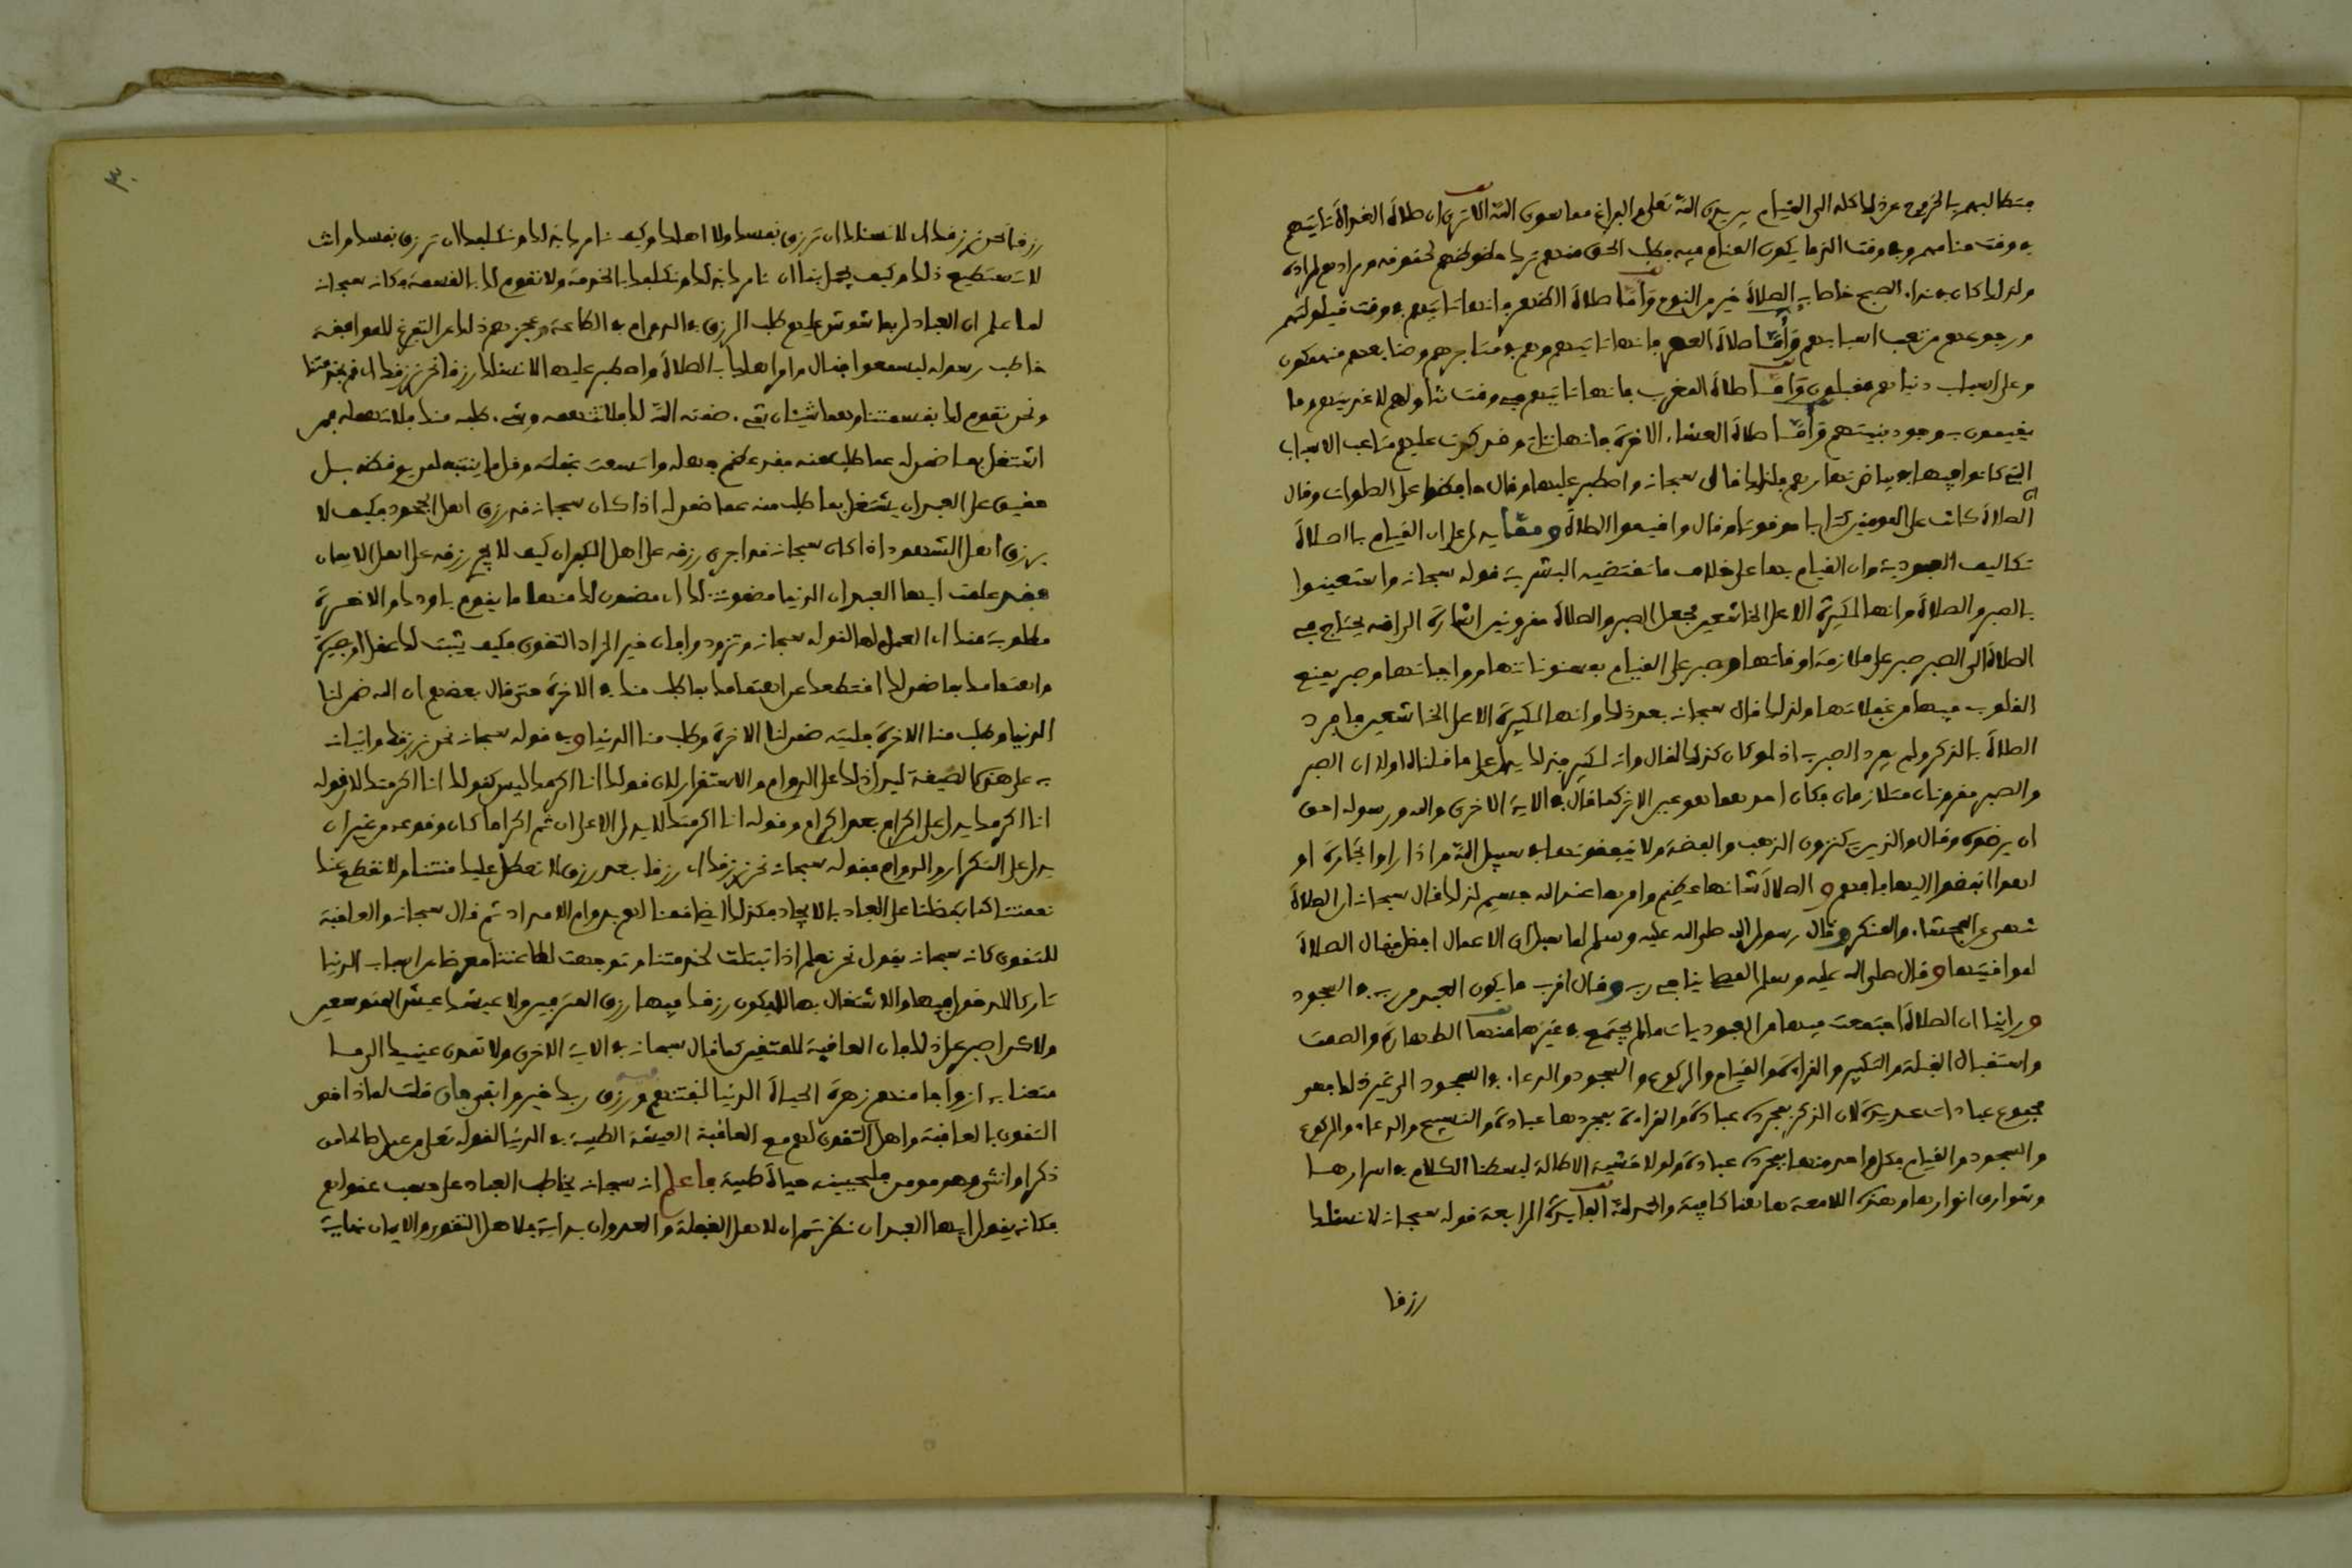 فتطالبهم بالخروج عن ذلك كله الى القيام بين يدي الله تعلى والفراغ مما سوى الله الا ترى ان صلاة الغداة تاتيهم
في وقت منامهم وفي وقت الذ ما يكون المنام فيه فطلب الحق منهم ترك حظوظهم لحقوقه ومرادهم لمراده
ولذلك كان في نداء الصبح خاصا به الصلاة خير من النوم وأما صلاة الظهر فانها تاتيهم في وقت قيلولتهم
ورجوعهم من تعب اسبابهم وأما صلاة العصر فانها تاتيهم وهم في متاجرهم وصنايعهم منهمكون
وعلى اسباب دنياهم مقبلون وأما صلاة المغرب فانها تاتيهم في وقت تناولهم لاغذيتهم وما
يقيمون به وجود بنيتهم وأما صلاة العشاء الاخرة فانها تاتي وقد كثرت عليهم متاعب الاسباب
التي كانوا فيها في بياض نهارهم فلذلك قال سبحانه واصطبر عليها وقال حافظوا على الصلوات وقال
ان الصلاة كانت على المومنين كتابا موقوتا وقال واقيموا الصلاة ومما يدل على ان القيام بالصلاة
تكاليف العبودية وان القيام بها على خلاف ما تقتضيه البشرية قوله سبحانه واستعينوا
بالصبر والصلاة وانها لكبيرة الا على الخاشعين فجعل الصبر والصلاة مقرونين اشارة الى انه يحتاج في
الصلاة الى الصبر صبر على ملازمة اوقاتها وصبر على القيام بمسنوناتها وواجباتها وصبر يمنع
القلوب فيها من غفلاتها ولذلك قال سبحانه بعد ذلك وانها لكبيرة الا على الخاشعين فافرد
الصلاة بالذكر ولم يفرد الصبر به اذ لو كان كذلك لقال وانه لكبير فذلك يدل على ما قلناه او لان الصبر
والصبر مقرونان متلازمان فكان احدهما هو عين الاخر كما قال في الاية الاخرى والله ورسوله احق
ان يرضوه وقال والذين يكنزون الذهب والفضة ولا ينفقونها في سبيل الله واذا راوا تجارة او
لهوا انفضوا اليها فافهم والصلاة شانها عظيم وامرها عند الله جسيم لذلك قال سبحانه ان الصلاة
تنهى عن الفحشاء والمنكر وقال رسول الله صلى الله عليه وسلم لما سئل اي الاعمال افضل فقال الصلاة
لمواقيتها وقال صلى الله عليه وسلم المصلي يناجي ربه وقال اقرب ما يكون العبد من ربه في السجود
وراينا ان الصلاة اجتمعت فيها من العبوديات ما لم يجتمع في غيرها منها الطهارة والصمت
واستقبال القبلة والتكبير والقراءة والقيام والركوع والسجود والدعاء في السجود الى غير ذلك فهو
مجموع عبادات عديدة لان الذكر بمجرده عبادة والقراءة بمجردها عبادة والتسبيح والدعاء والركوع
والسجود والقيام فكل واحد منها بمجرده عبادة ولولا خشية الاطالة لبسطنا الكلام في اسرارها
وشوارق انوارها وهذه اللامعة هاهنا كافية والحمد لله الفايدة الرابعة قوله سبحانه لا نسئلك
رزقا
٣٠
رزقا نحن نرزقك اي لا نسئلك ان ترزق نفسك ولا اهلك وكيف نامرك بذلك ونكلفك ان ترزق نفسك وانت
لا تستطيع ذلك وكيف يجمل بنا ان نامرك بذلك ونكلفك بالخدمة ولا نقوم لك بالقسمة وكانه سبحانه
لما علم ان العباد ربما شوش عليهم طلب الرزق في الدوام في الطاعة وحجزهم ذلك عن التفرغ للموافقة
خاطب رسوله ليسمعوا فقال وامر اهلك بالصلاة واصطبر عليها لا نسئلك رزقا نحن نرزقك اي قم بخدمتنا
ونحن نقوم لك بقسمتنا وهما شيئان شيء ضمنه الله لك فلا تتهمه وشيء طلبه منك فلا تهمله فمن
اشتغل بما ضمن له عما طلب منه فقد عظم جهله واتسعت غفلته وقل ما ينتبه لمن يوقظه بل
حقيق على العبد ان يشتغل بما طلب منه عما ضمن له اذا كان سبحانه قد رزق اهل الجحود فكيف لا
يرزق اهل الشهود اذا كان سبحانه قد اجرى رزقه على اهل الكفران كيف لا يجري رزقه على اهل الايمان
فقد علمت ايها العبد ان الدنيا مضمونة لك اي مضمون لك منها ما يقوم باودك والاخرة
مطلوبة منك اي العمل لها لقوله سبحانه وتزودوا فان خير الزاد التقوى فكيف يثبت لك عقل او بصيرة
واهتمامك بما ضمن لك اقتطعك عن اهتمامك بما طلب منك في الاخرة حتى قال بعضهم ان الله ضمن لنا
الدنيا وطلب منا الاخرة فليته ضمن لنا الاخرة وطلب منا الدنيا وفي قوله سبحانه نحن نرزقك واتيانه
به على هذه الصيغة ليدل ذلك على الدوام والاستقرار لان قولك انا اكرمك ليس كقولك انا اكرمتك لان قوله
انا اكرمك يدل على اكرام بعد اكرام وقوله انا اكرمتك لا يدل الا على ان ثم اكراما كان وقوعه من غير ان
يدل على التكرار والدوام فقوله سبحانه نحن نرزقك اي رزقا بعد رزق لا نعطل عليك منتنا ولا نقطع عنك
نعمتنا كما تفضلنا على العباد بالايجاد فكذلك ايضا قمنا لهم بدوام الامداد ثم قال سبحانه والعاقبة
للتقوى كانه سبحانه يقول نحن نعلم اذا تبتلت لخدمتنا وتوجهت لطاعتنا معرضا عن اسباب الدنيا
تاركا للدخول فيها والاشتغال بها لا يكون رزقك فيها رزق المترفين ولا عيشك عيش المتوسعين
ولاكن اصبر على ذلك فان العاقبة للمتقين كما قال سبحانه في الاية الاخرى ولا تمدن عينيك الى ما
متعنا به ازواجا منهم زهرة الحياة الدنيا لنفتنهم فيه ورزق ربك خير وابقى فان قلت لماذا خص
التقوى بالعاقبة واهل التقوى لهم مع العاقبة العيشة الطيبة في الدنيا لقوله تعلى من عمل صالحا من
ذكر او انثى وهو مومن فلنحيينه حياة طيبة فاعلم انه سبحانه يخاطب العباد على حسب عقولهم
فكانه يقول ايها العبد ان نظرتم ان لاهل الغفلة والعدوان بداية فلاهل التقوى والايمان نهاية